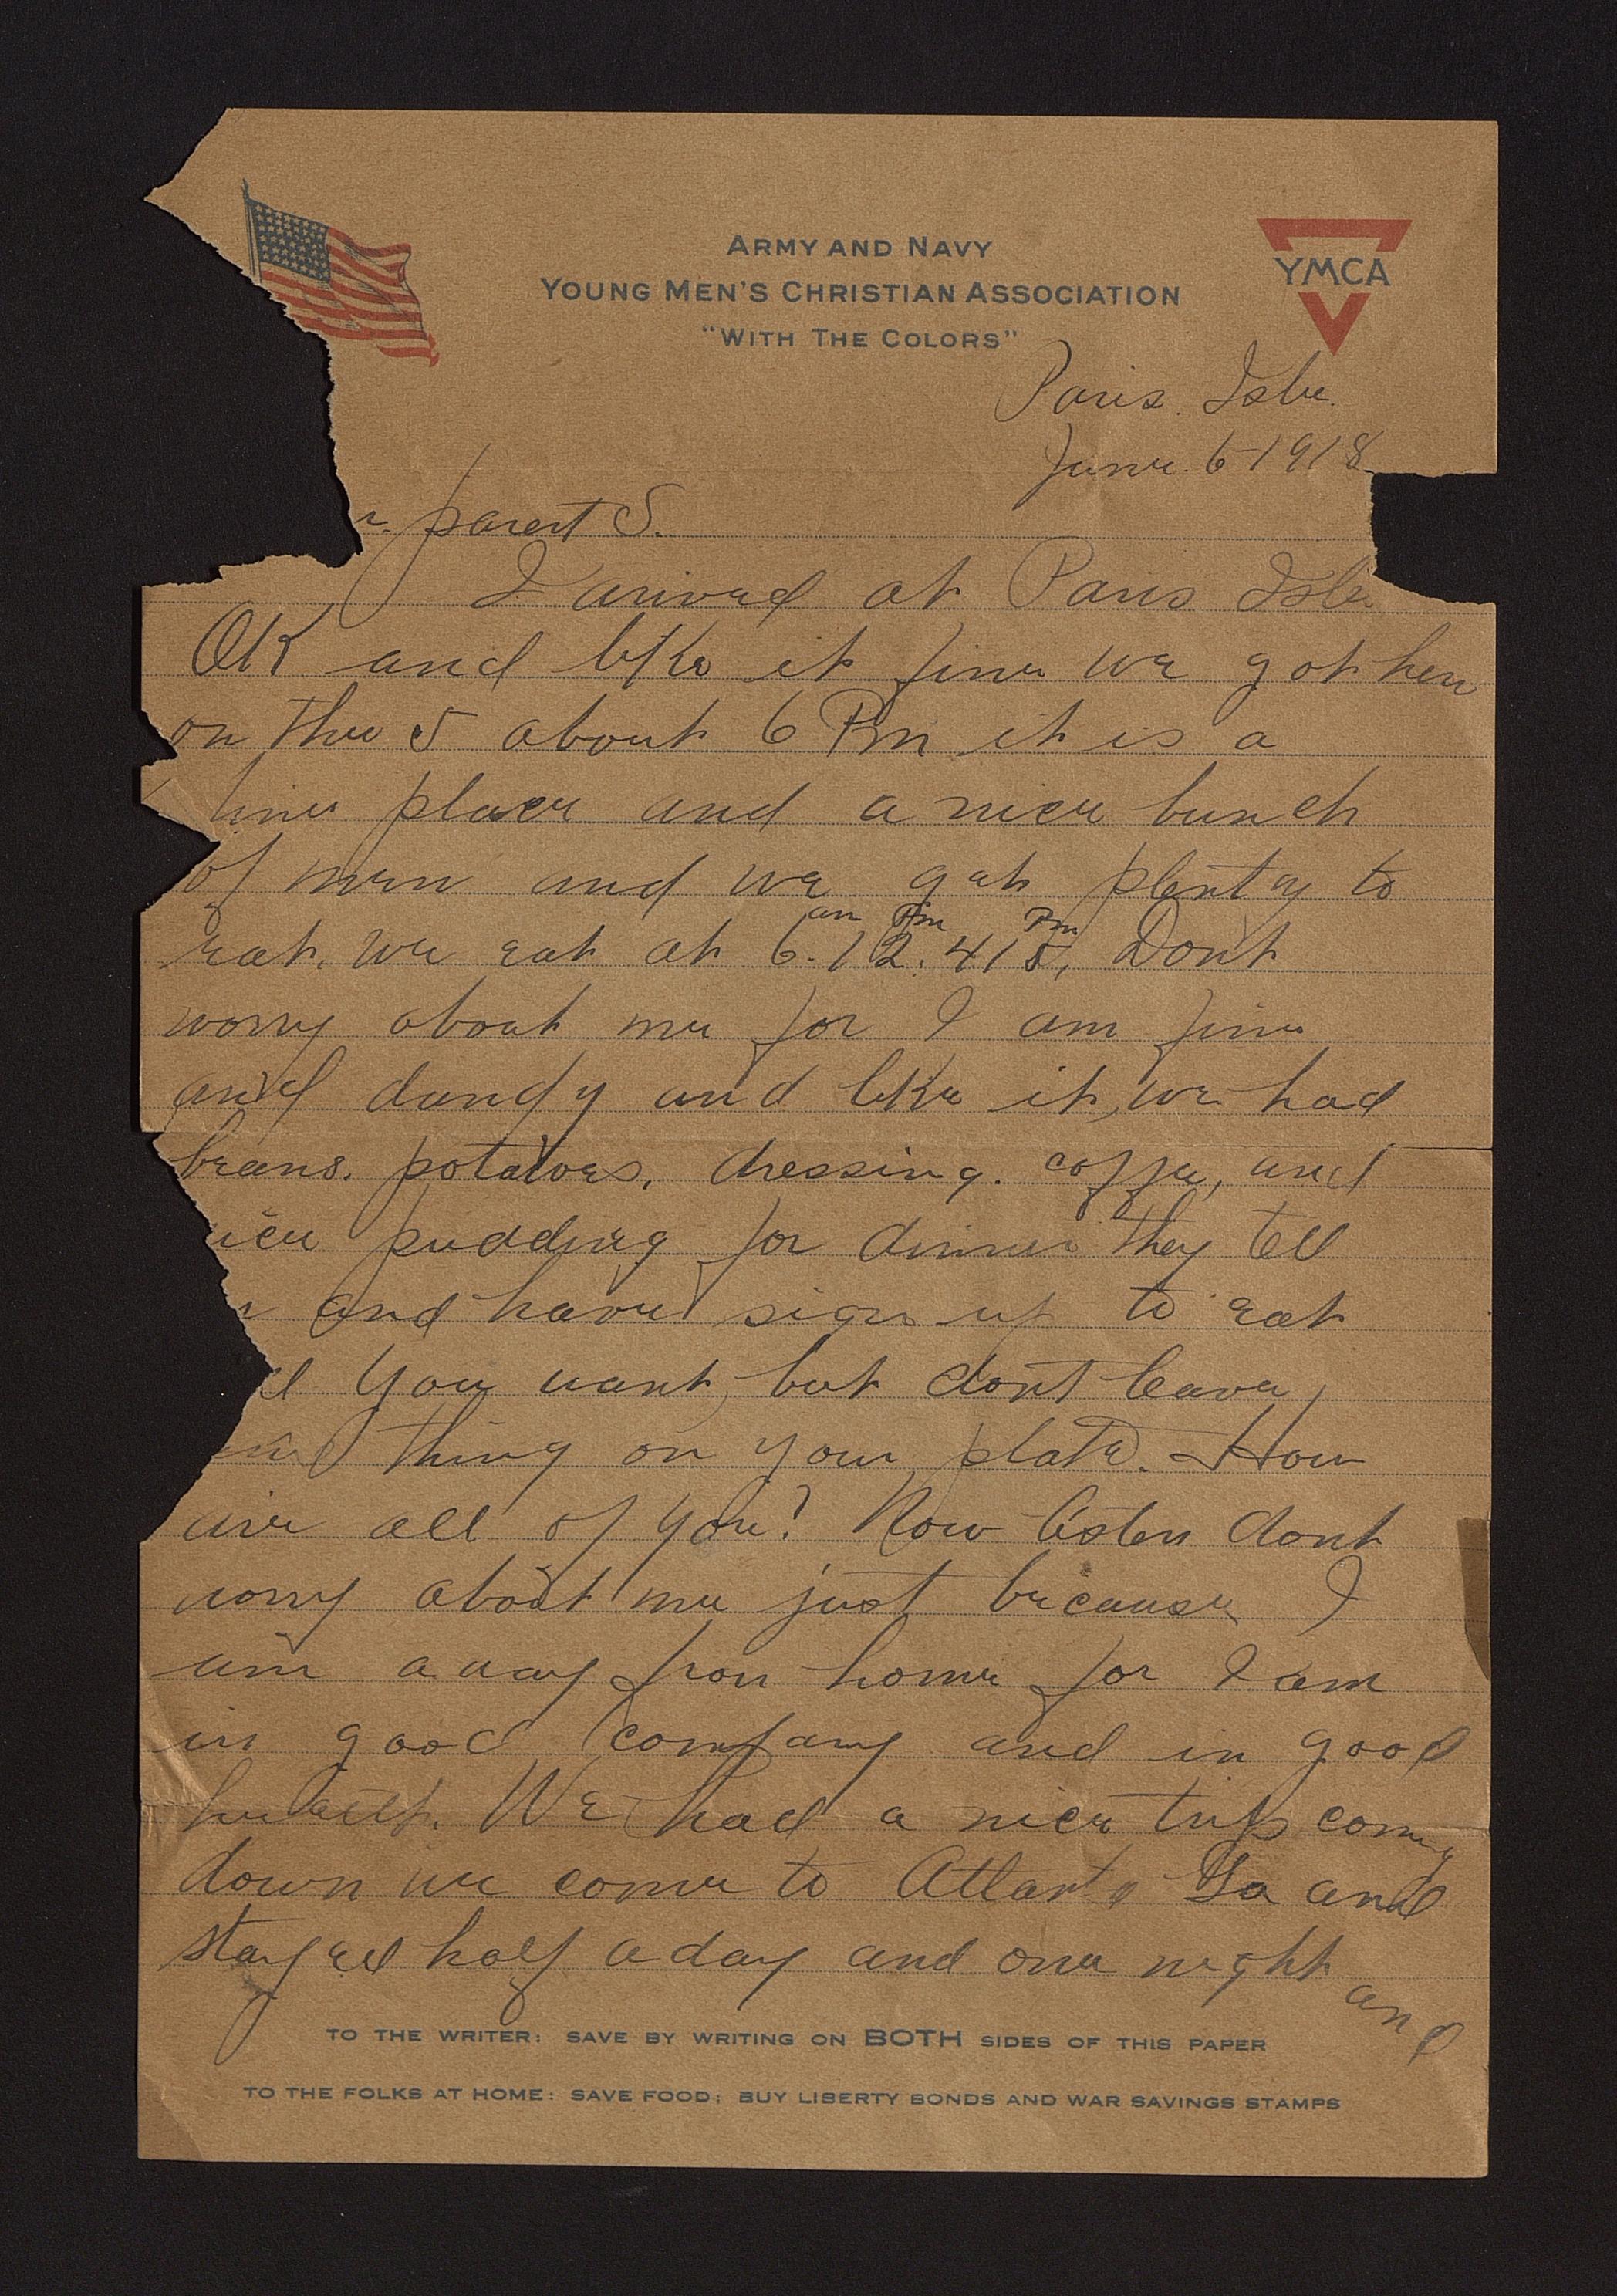 ARMY AND NAVY
YOUNG MEN'S CHRISTIAN ASSOCIATION
"WITH THE COLORS"
YMCA
Paris. Isle.
June. 6-1918
r. parent S.
I arived at Paris Isle.
OK and like it fine we got here
on the 5 about 6 Pm it is a
fine place and a nice bunch
of men and we get plenty to
eat. We eat at 6. am 12. Pm 415, Pm Don't
worry about me for I am fine
and dandy and like it, we had
beans. potatoes, dressing. coffe, and
rice pudding for dinner they tell
and have sign up to eat
all you want, but dont leave
thing on your plate. How
are all of you? Now listen dont
worry about me just because I
am away from home for I am
in good company and in good
health. We had a nice trip coming
down we come to Atlanta Ga and
stayed half a day and one night and
TO THE WRITER: SAVE BY WRITING ON BOTH SIDES OF THIS PAPER
TO THE FOLKS AT HOME: SAVE FOOD; BUY LIBERTY BONDS AND WAR SAVINGS STAMPS